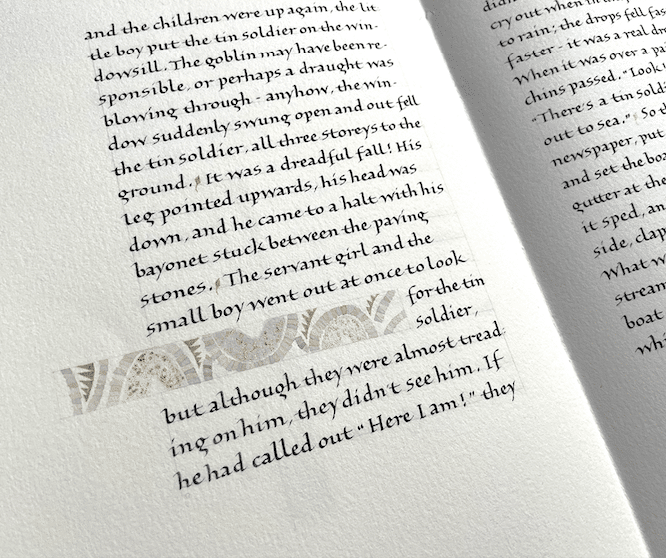 and the children were up again, the lit
tle boy put the tin soldier on the win-
dowsill. The goblin may have been re-
sponsible, or perhaps a draught was
blowing through - anyhow, the win-
dow suddenly swung open and out fell
the tin soldier, all three storeys to the
ground. It was a dreadful fall! His
leg pointed upwards, his head was
down, and he came to a halt with his
bayonet stuck between the paving
stones. The servant girl and the
small boy went out at once to look
for the tin
soldier,
but although they were almost tread-
ing on him, they didn't see him. If
he had called out "Here I am!" they
cry out when
to rain; the drops fell fas
faster - it was a real dr
When it was over a pa
chins passed. "Look!
"There's a tin soldi
out to sea." So th
newspaper, put
and set the boa
gutter at the
it sped, an
side, clap
What w
stream
boat
whi